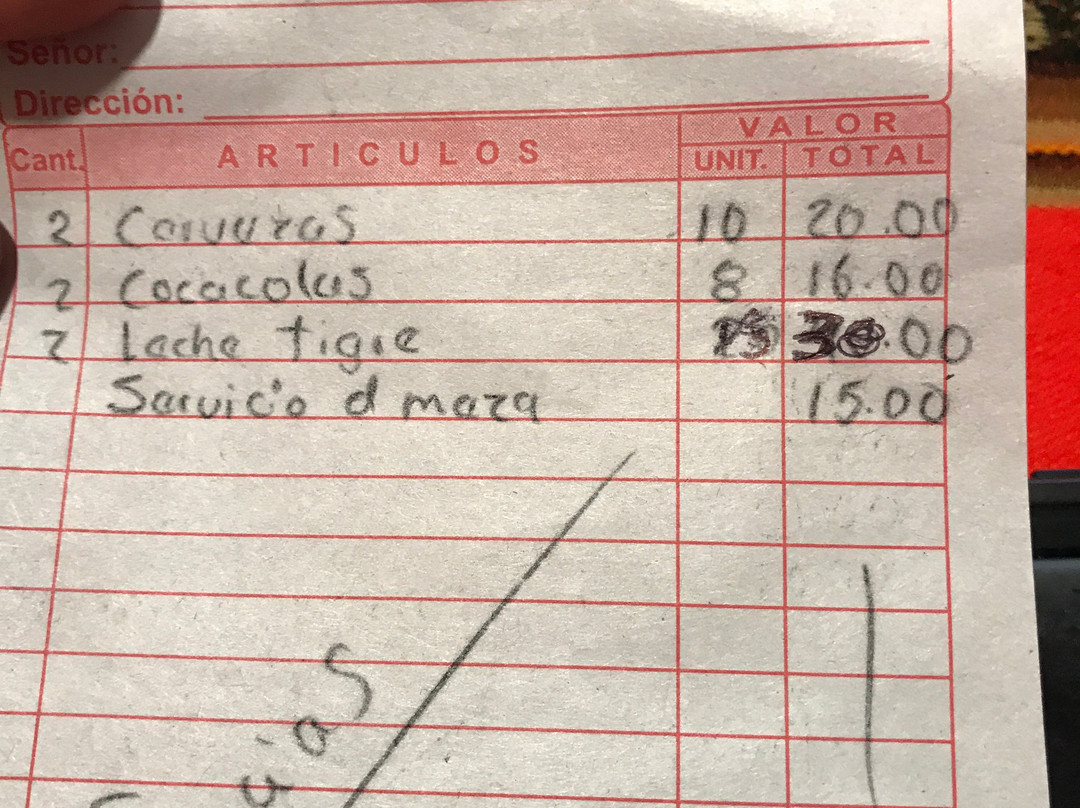 Señor:
Dirección:
Cant. ARTICULOS VALOR
UNIT. TOTAL
2 Cervezas 10 20.00
2 Cocacolas 8 16.00
2 Leche tigre 15 30.00
Servicio d meza 15.00